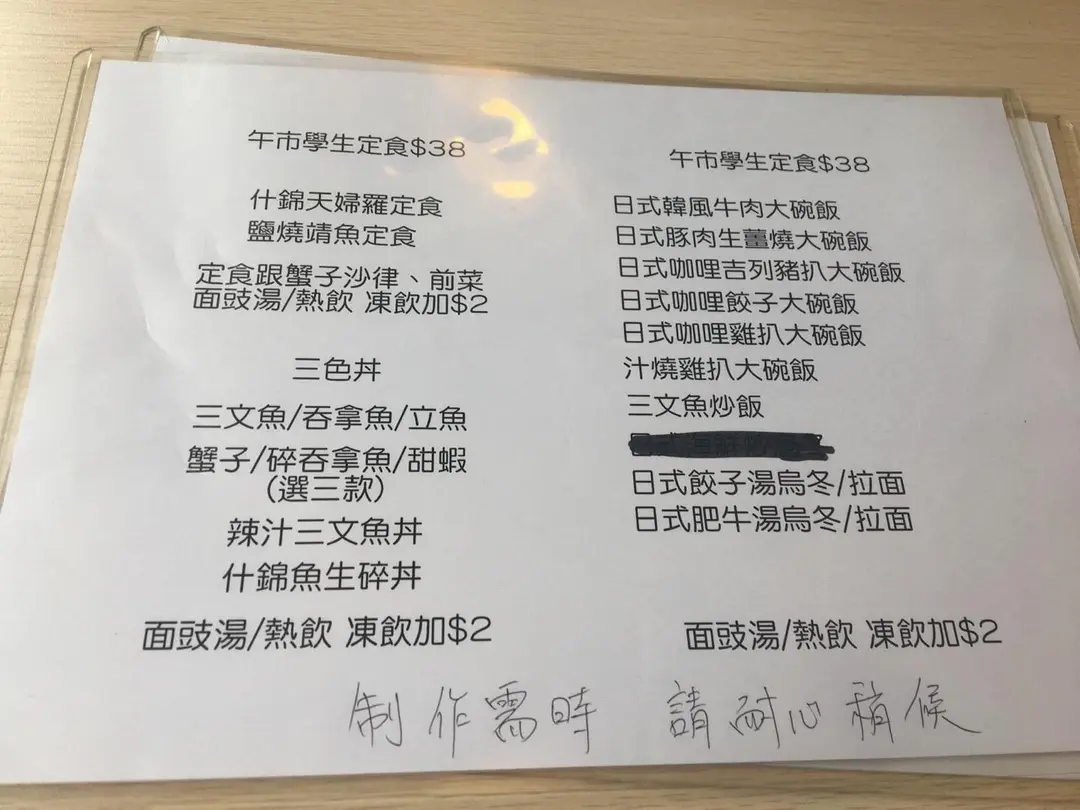 午市學生定食$38
什錦天婦羅定食
鹽燒靖魚定食
定食跟蟹子沙律、前菜
面豉湯/熱飲 凍飲加$2
三色丼
三文魚/吞拿魚/立魚
蟹子/碎吞拿魚/甜蝦
(選三款)
辣汁三文魚丼
什錦魚生碎丼
面豉湯/熱飲 凍飲加$2
午市學生定食$38
日式韓風牛肉大碗飯
日式豚肉生薑燒大碗飯
日式咖哩吉列豬扒大碗飯
日式咖哩餃子大碗飯
日式咖哩雞扒大碗飯
汁燒雞扒大碗飯
三文魚炒飯
日式餃子湯烏冬/拉面
日式肥牛湯烏冬/拉面
面豉湯/熱飲 凍飲加$2
制作需時 請耐心稍候